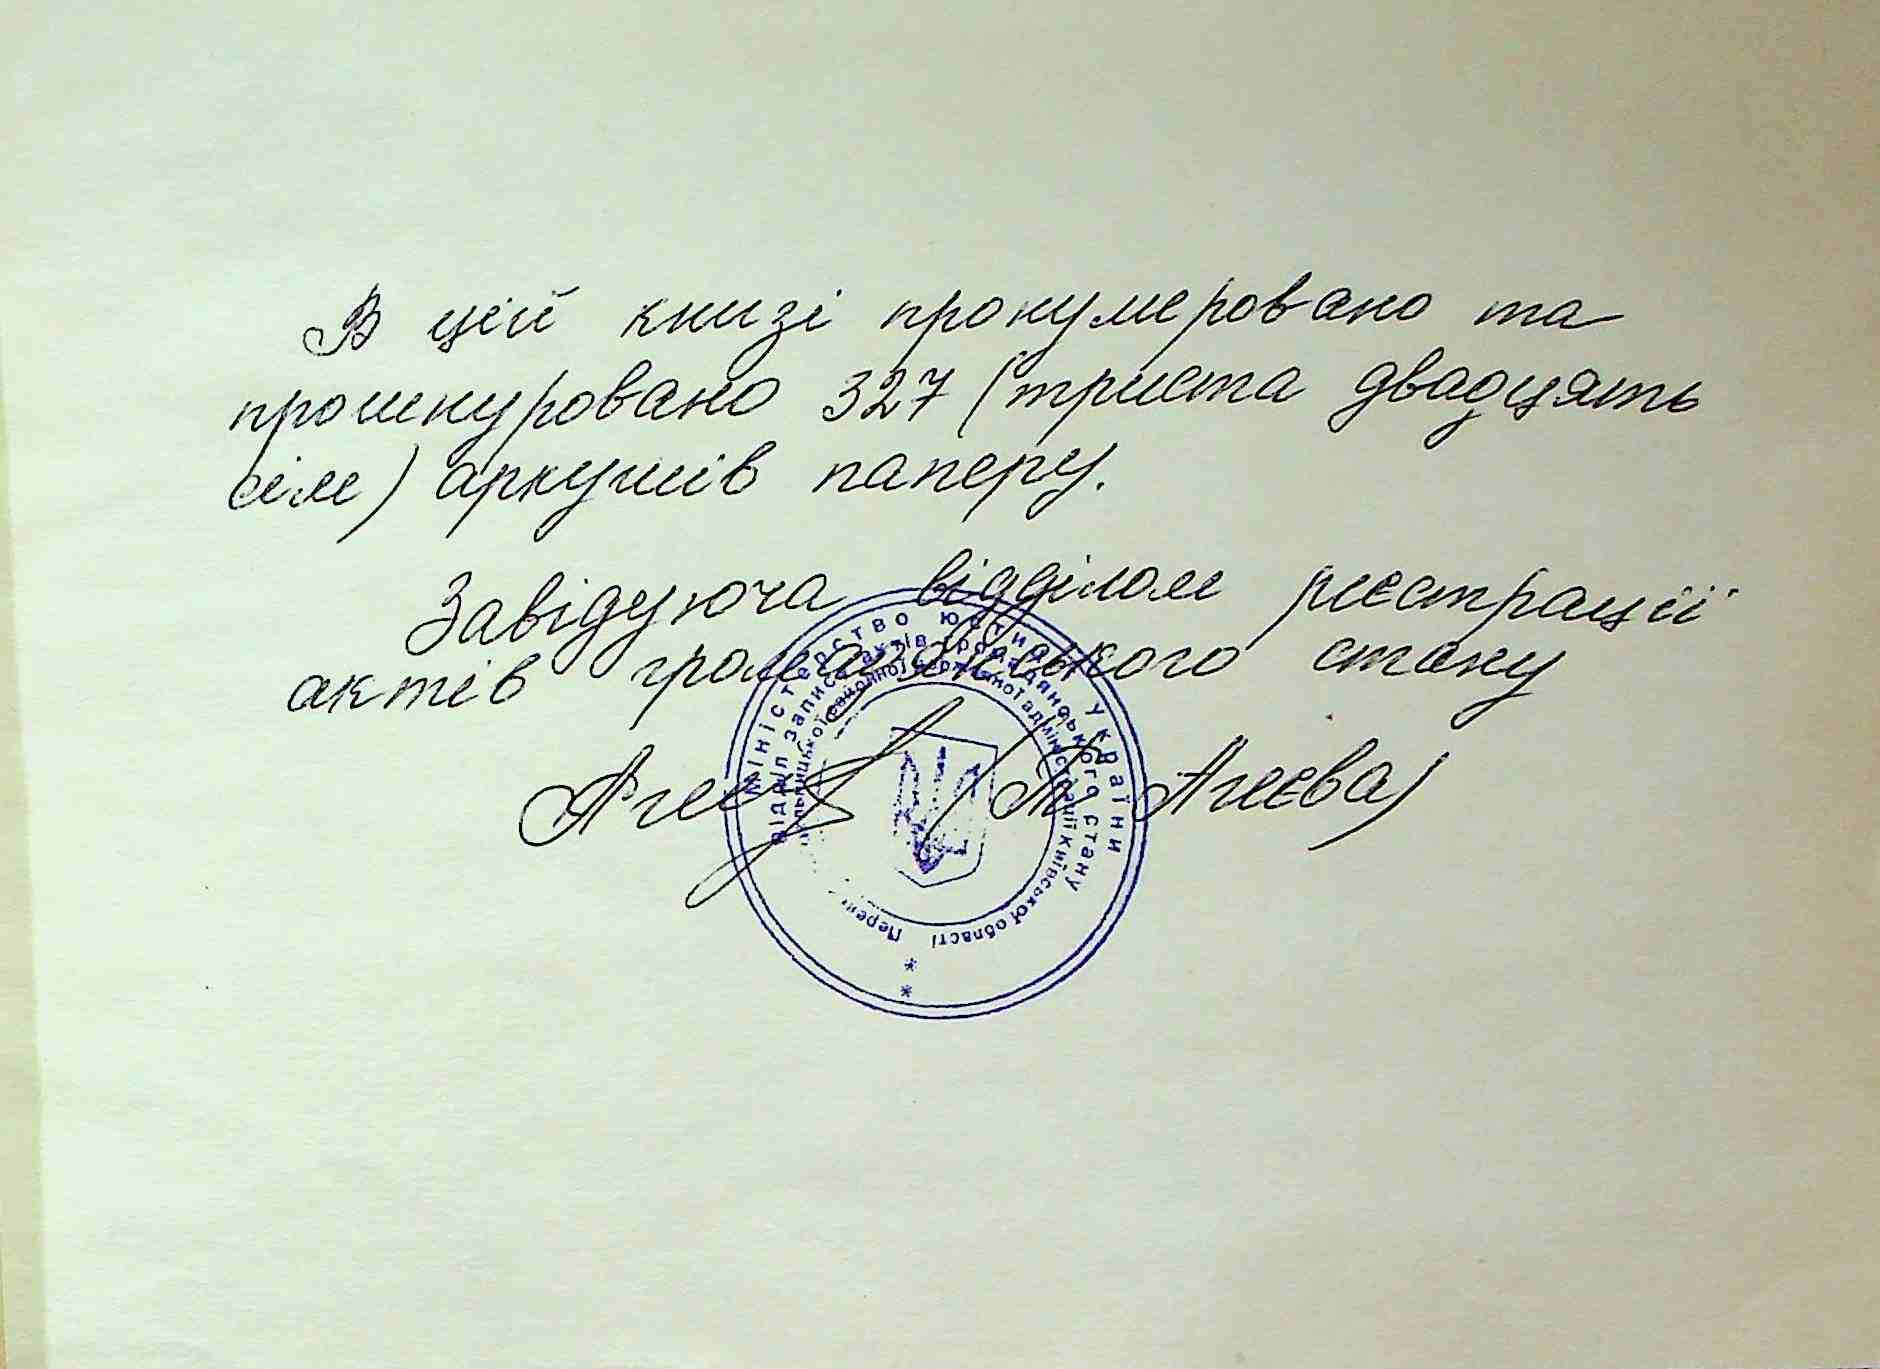 В цій книзі пронумеровано та
прошнуровано 327 (триста двадцять
сім) аркушів паперу.
Завідуюча відділом реєстрації
актів громадянського стану
Агеє (А. Агеєва)
Міністерство юстиції України
відділ записів актів громадянського стану
районної державної адміністрації Київської області
* *